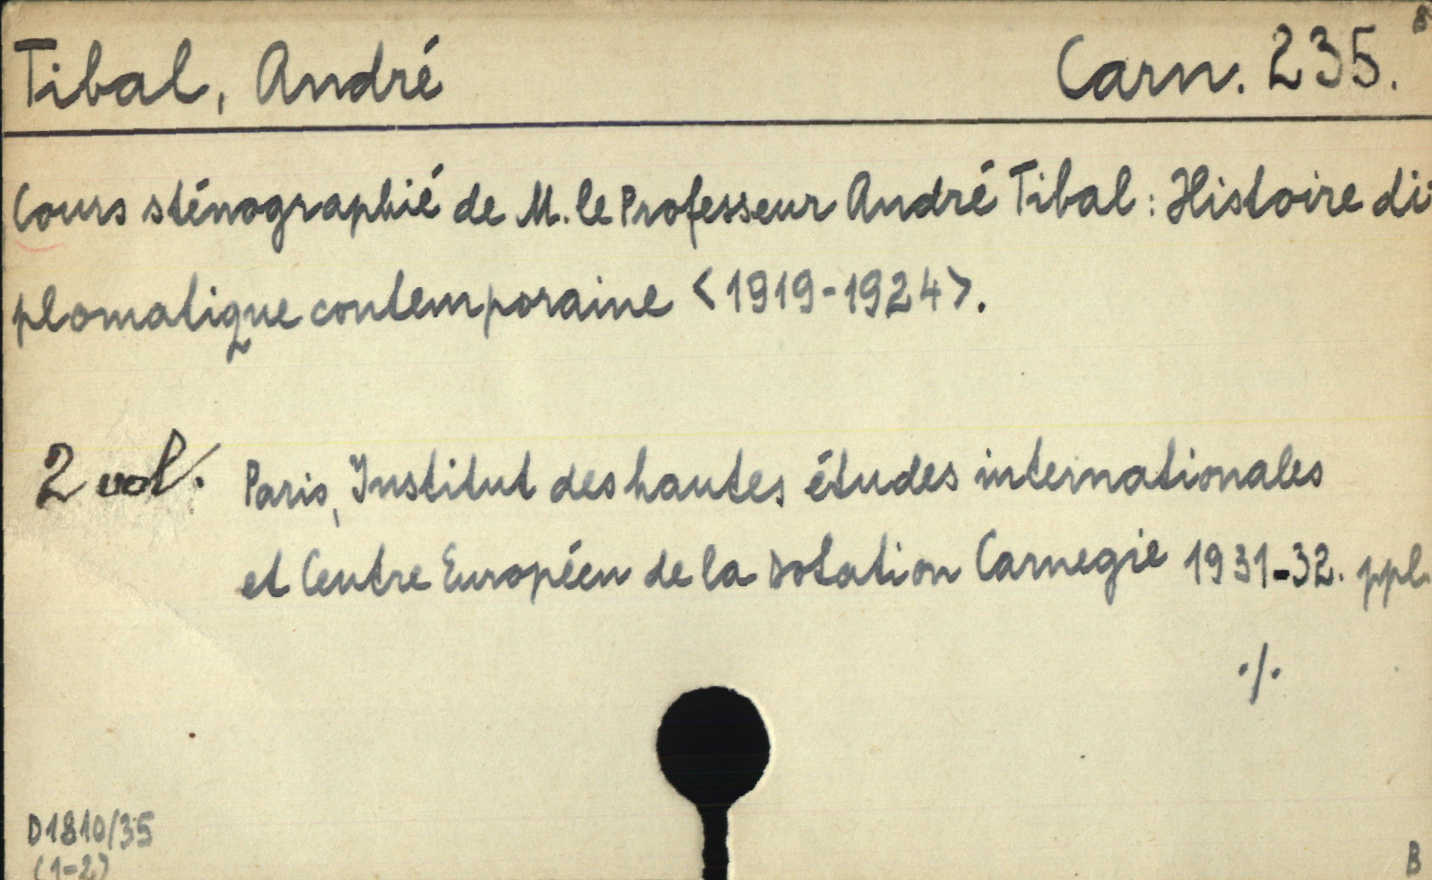 Tibal, André Carn. 235. 8
Cours sténographié de M. le Professeur André Tibal: Histoire di
plomatique contemporaine <1919-1924>.
2 vol. Paris, Institut des hautes études internationales
et Centre Européen de la Dotation Carnegie 1931-32. ppl.
./.
D1810/35
(1-2)
B